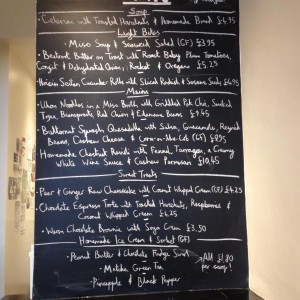 Soup
• Celeriac with Toasted Hazelnuts & Homemade Bread £4.95
Light Bites
• Miso Soup & Seaweed Salad (GF) £3.95
• Beetroot Butter on Toast with Roast Baby Plum Tomatoes,
Confit & Dehydrated Onion, Rocket & Oregano £5.25
Hoisin Seitan Cucumber Rolls with Sliced Radish & Sesame Seeds £6.95
Mains
• Udon Noodles in a Miso Broth with Griddled Pak Choi, Smoked
Tofu, Beansprouts, Red Onion & Edamame Beans £9.45
• Butternut Squash Quesadilla with Salsa, Guacamole, Refried
Beans, Cashew Cheese & Corn-on-the-Cob (GF) £9.95
• Homemade Chestnut Ravioli with Fennel, Tarragon, & Creamy
White Wine Sauce & Cashew Parmesan £10.45
Sweet Treats
• Pear & Ginger Raw Cheesecake with Coconut Whipped Cream (GF) £4.25
• Chocolate Espresso Torte with Toasted Hazelnuts, Raspberries &
Coconut Whipped Cream £4.25
• Warm Chocolate Brownie with Soya Cream £3.50
Homemade Ice Cream & Sorbet (GF)
• Peanut Butter & Chocolate Fudge Swirl
• Matcha Green Tea
• Pineapple & Black Pepper
All £1.80
per scoop!